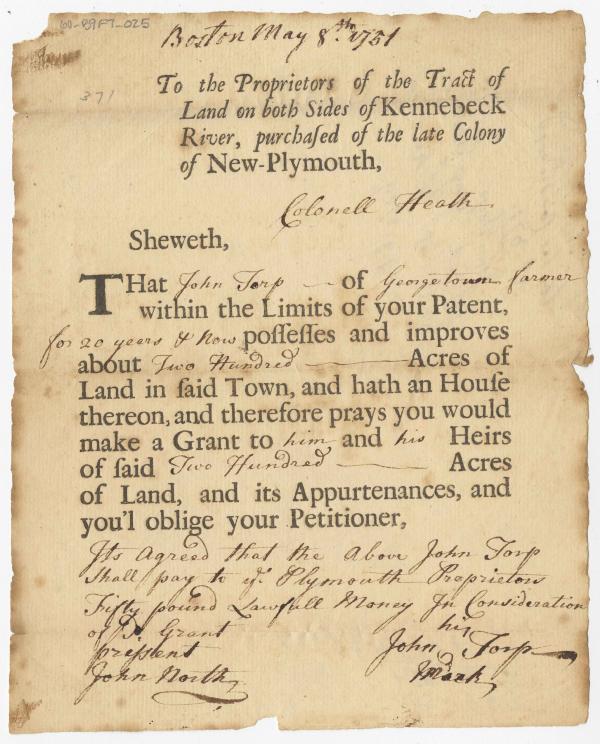 60-89F7-025
Boston May 8th. 1751
371
To the Proprietors of the Tract of
Land on both Sides of Kennebeck
River, purchaſed of the late Colony
of New-Plymouth,
Colonell Heath
Sheweth,
THat John Torp of Georgetown farmer
within the Limits of your Patent,
for 20 years & Now poſſeſſes and improves
about Two Hundred Acres of
Land in ſaid Town, and hath an Houſe
thereon, and therefore prays you would
make a Grant to him and his Heirs
of ſaid Two Hundred Acres
of Land, and its Appurtenances, and
you'l oblige your Petitioner,
Its Agreed that the Above John Torp
Shall pay to ye. Plymouth Proprietors
Fifty pound Lawfull Money In Consideration
of Grant
preſsent
John North
his
John Torp
Mark